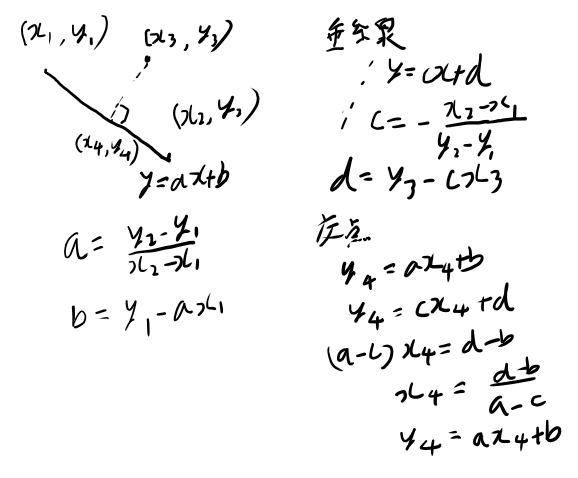 (x₁, y₁)
(x₃, y₃)
(x₂, y₂)
(x₄, y₄)
y=ax+b
a = \frac{y₂-y₁}{x₂-x₁}
b = y₁-ax₁
: y=cx+d
; c = -\frac{x₂-x₁}{y₂-y₁}
d = y₃-cx₃
交点
y₄ = ax₄+b
y₄ = cx₄+d
(a-c) x₄ = d-b
x₄ = \frac{d-b}{a-c}
y₄ = ax₄+b